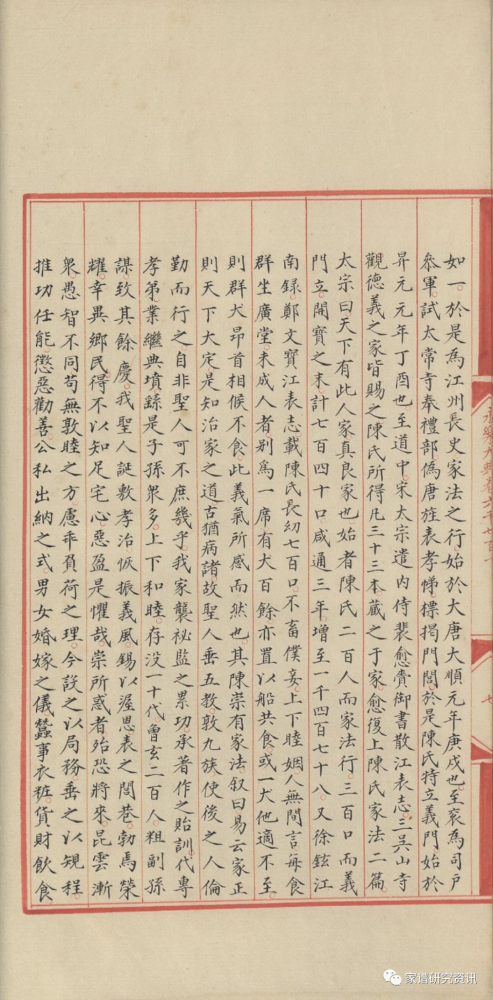 如一於是為江州長史家法之行始於大唐大順元年庚戌也至袞為司戶
叅軍試太常寺奉禮部偽唐旌表孝悌標揭門閭於是陳氏特立義門始於
昇元元年丁酉也至道中宋太宗遣内侍裴愈賫御書散江表志三吳山寺
觀德義之家皆賜之陳氏所得凡三十三本藏之于家愈復上陳氏家法二篇
太宗曰天下有此人家真良家也始者陳氏二百人而家法行三百口而義
門立開寶之末計七百四十口咸通三年增至一千四百七十八又徐鉉江
南錄鄭文寶江表志載陳氏長幼七百口不畜僕妾上下睦姻人無間言每食
群坐廣堂未成人者别為一席有犬百餘亦置以船共食或一犬他適不至
則群犬昂首相候不食此義氣所感而然也其陳崇有家法叙曰易云家正
則天下大定是知治家之道古猶病諸故聖人垂五教敦九族使後之人倫
勤而行之自非聖人可不庶幾乎我家襲祕監之累功承著作之貽訓代專
孝弟業繼典墳繇是子孫衆多上下和睦存没一十代曾玄二百人粗副孫
謀致其餘慶我聖人誕敷孝治恢振義風錫以渥恩表之閭巷勃馬榮
耀幸異鄉民得不以知足宅心惡盈是懼哉崇所惑者殆恐將來昆雲漸
衆愚智不同苟無敦睦之方慮乖負荷之理今設之以局務垂之以規程
推功任能懲惡勸善公私出納之式男女婚嫁之儀蠶事衣粧貨財飲食
家谱研究资讯